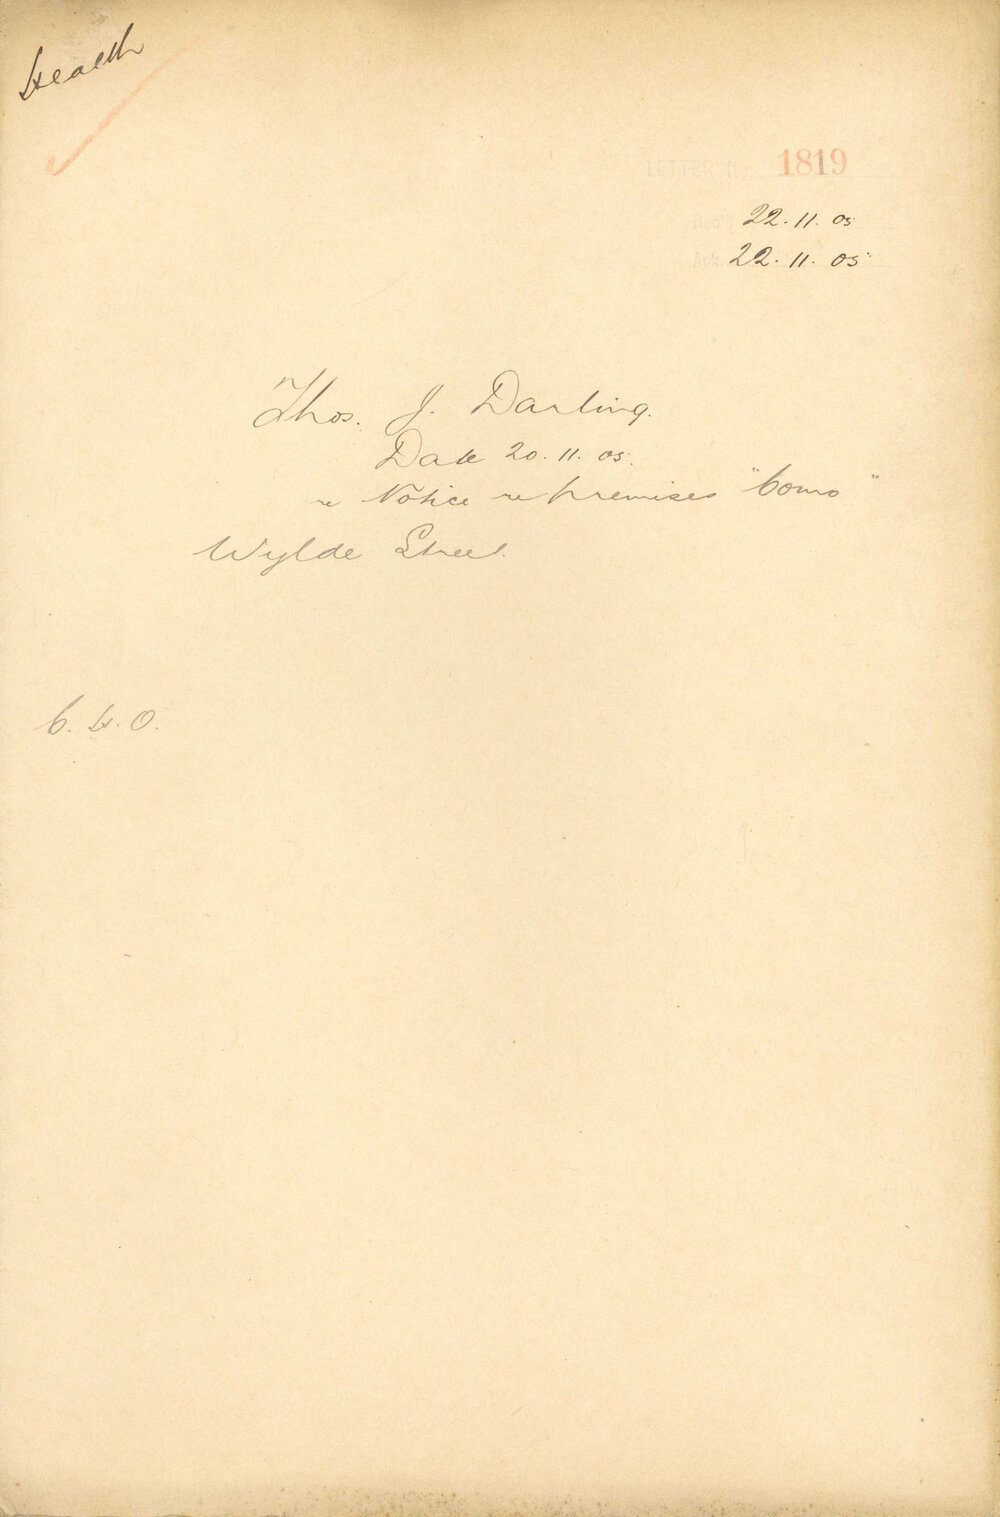 Health
LETTER No. 1819
Rec'd 22.11.05
Ack. 22.11.05
Thos. J. Darling.
Date 20.11.05.
re Notice re premises "Como"
Wylde Street.
C. H. O.